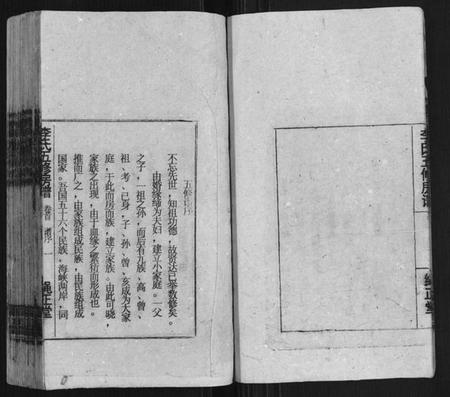 五修谱序
不忘先世，知祖功德，故贤达已举数修矣。
由婚缘缔为夫妇，建立小家庭。一父
之子，一祖之孙，而后有九族、高、曾、
祖、考、已身，子、孙、曾、玄成为大家
庭，于此而房而族，建立家族。由此可晓，
家族之出现，由于血缘之繁衍而形成也。
推而广之，由家族组成民族，由民族组成
国家。吾国五十六个民族，海峡两岸，同
李氏五修房谱
卷首
谱序
一
李氏五修房谱